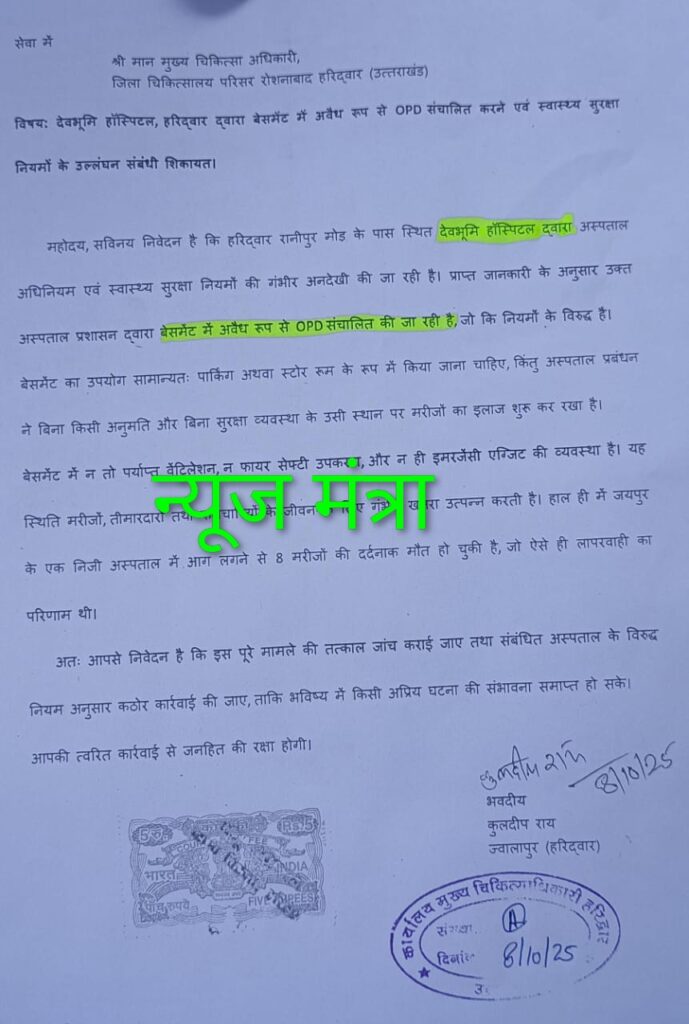 सेवा में
श्री मान मुख्य चिकित्सा अधिकारी,
जिला चिकित्सालय परिसर रोशनाबाद हरिद्वार (उत्तराखंड)
विषय: देवभूमि हॉस्पिटल, हरिद्वार द्वारा बेसमेंट में अवैध रूप से OPD संचालित करने एवं स्वास्थ्य सुरक्षा
नियमों के उल्लंघन संबंधी शिकायत।
महोदय, सविनय निवेदन है कि हरिद्वार रानीपुर मोड के पास स्थित देवभूमि हॉस्पिटल द्वारा अस्पताल
अधिनियम एवं स्वास्थ्य सुरक्षा नियमों की गंभीर अनदेखी की जा रही है। प्राप्त जानकारी के अनुसार उक्त
अस्पताल प्रशासन द्वारा बेसमेंट में अवैध रूप से OPD संचालित की जा रही है, जो कि नियमों के विरुद्ध है।
बेसमेंट का उपयोग सामान्यतः पार्किंग अथवा स्टोर रूम के रूप में किया जाना चाहिए, किंतु अस्पताल प्रबंधन
ने बिना किसी अनुमति और बिना सुरक्षा व्यवस्था के उसी स्थान पर मरीजों का इलाज शुरू कर रखा है।
बेसमेंट में न तो पर्याप्त वेंटिलेशन, न फायर सेफ्टी उपकरण, और न ही इमरजेंसी एग्जिट की व्यवस्था है। यह
न्यूज मंत्रा
स्थिति मरीजों, तीमारदारों उत्पन्न करती है। हाल ही में जयपुर
के एक निजी अस्पताल में आग लगने से 8 मरीजों की दर्दनाक मौत हो चुकी है, जो ऐसे ही लापरवाही का
परिणाम थी।
अतः आपसे निवेदन है कि इस पूरे मामले की तत्काल जांच कराई जाए तथा संबंधित अस्पताल के विरुद्ध
नियम अनुसार कठोर कार्रवाई की जाए, ताकि भविष्य में किसी अप्रिय घटना की संभावना समाप्त हो सके।
आपकी त्वरित कार्रवाई से जनहित की रक्षा होगी।
कुलदीप राय
8/10/25
भवदीय
कुलदीप राय
ज्वालापुर (हरिद्वार)
भारत
INDIA
पांच रुपये
FIVE RUPEES
कार्यालय मुख्य चिकित्साधिकारी हरिद्वार
दिनांक 8/10/25